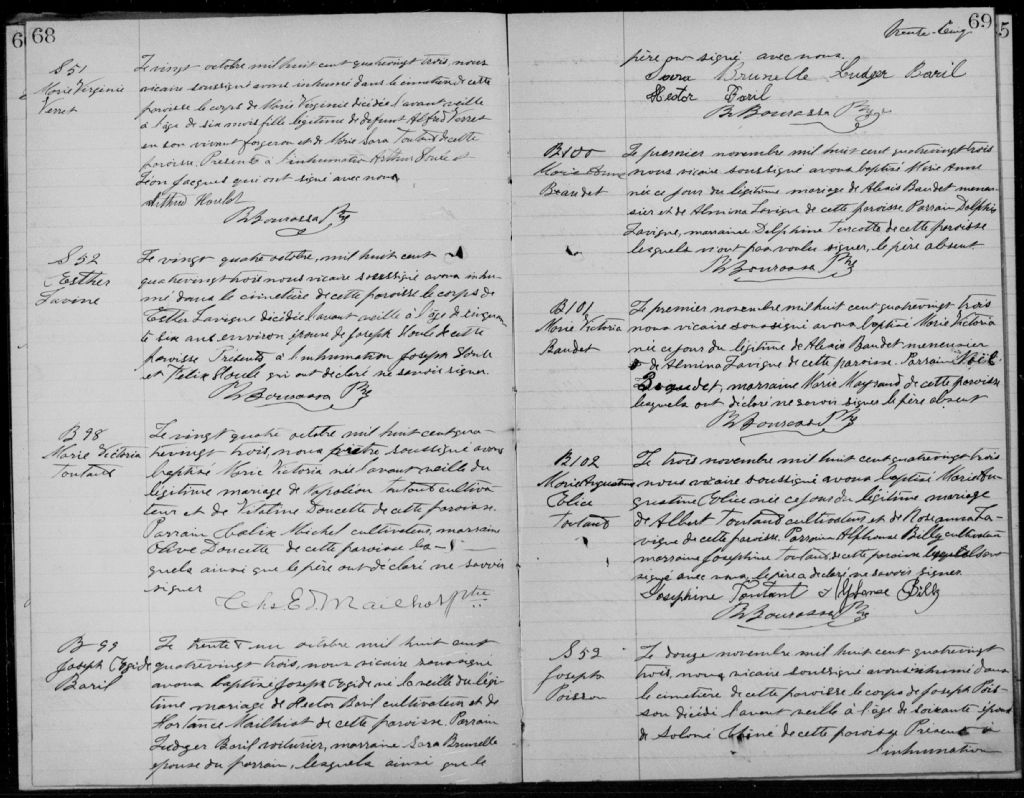 68
S 51
Marie Virginie
Verret
Le vingt octobre mil huit cent quatrevingt trois, nous
vicaire soussigné avons inhumé dans le cimetière de cette
paroisse le corps de Marie Virginie décidée l'avant veille
à l'âge de six mois fille légitime de defunt Alfred Verret
en son vivant forgeron et de Marie Sara Toutant de cette
paroisse. Présents à l'inhumation Arthur Houle et
Léon Jacques qui ont signé avec nous
Arthur Houle
B Bourassa Ptre
S 52
Esther
Lavigne
Le vingt quatre octobre, mil huit cent
quatrevingt trois nous vicaire soussigné avons inhu-
mé dans le cimetière de cette paroisse le corps de
Esther Lavigne décidée l'avant veille à l'âge de cinquan
te six ans environ épouse de Joseph Houle de cette
paroisse Présents à l'inhumation Joseph Houle
et Félix Houle qui ont déclaré ne savoir signer.
B Bourassa Ptre
B 98
Marie Victoria
Toutant
Le vingt quatre octobre mil huit cent qua-
trevingt trois, nous prêtre soussigné avons
baptisé Marie Victoria née l'avant veille du
légitime mariage de Napoléon Toutant cultiva-
teur et de Vitaline Doucette de cette paroisse.
Parrain Calix Michel cultivateur, marraine
Olive Doucette de cette paroisse les-
quels ainsi que le père ont déclaré ne savoir
signer
Chs E T Mailhot Ptre
B 99
Joseph Egide
Baril
Le trente et un octobre mil huit cent
quatrevingt trois, nous vicaire soussigné
avons baptisé Joseph Egide né la veille du légi-
time mariage de Hector Baril cultivateur et de
Hortance Mailhiot de cette paroisse. Parrain
Ludger Baril voiturier, marraine Sara Brunelle
épouse du parrain, lesquels ainsi que le
69
Trente-cinq
père ont signé avec nous.
Sara Brunelle Ludger Baril
Hector Baril
B Bourassa Ptre
B 100
Marie Anne
Beaudet
Le premier novembre mil huit cent quatrevingt trois
nous vicaire soussigné avons baptisé Marie Anne
née ce jour du légitime mariage de Alexis Baudet menui-
sier et de Almina Lavigne de cette paroisse. Parrain Delphis
Lavigne, marraine Delphine Turcotte de cette paroisse
lesquels n'ont pas voulu signer, le père absent
B Bourassa Ptre
B 101
Marie Victoria
Baudet
Le premier novembre mil huit cent quatrevingt trois
nous vicaire soussigné avons baptisé Marie Victoria
née ce jour du légitime de Alexis Baudet menuisier
& de Almina Lavigne de cette paroisse. Parrain Noël
Beaudet, marraine Marie Maynard de cette paroisse
lesquels ont déclaré ne savoir signer le père absent
B Bourassa Ptre
B 102
Marie Augustine
Eolice
Toutant
Le trois novembre mil huit cent quatrevingt trois
nous vicaire soussigné avons baptisé Marie Au-
gustine Eolice née ce jour du légitime mariage
de Albert Toutant cultivateur et de Roseanna La-
vigne de cette paroisse. Parrain Alphonse Billy cultivateur
marraine Josephine Toutant, de cette paroisse lesquels ont
signé avec nous, le père a déclaré ne savoir signer.
Josephine Toutant Alphonse Billy
B Bourassa Ptre
S 53
Joseph
Poisson
Le douze novembre mil huit cent quatrevingt
trois, nous vicaire soussigné avons inhumé dans
le cimetière de cette paroisse le corps de Joseph Pois-
son décidé l'avant veille à l'âge de soixante époux
de Salomé de cette paroisse Présents à
l'inhumation